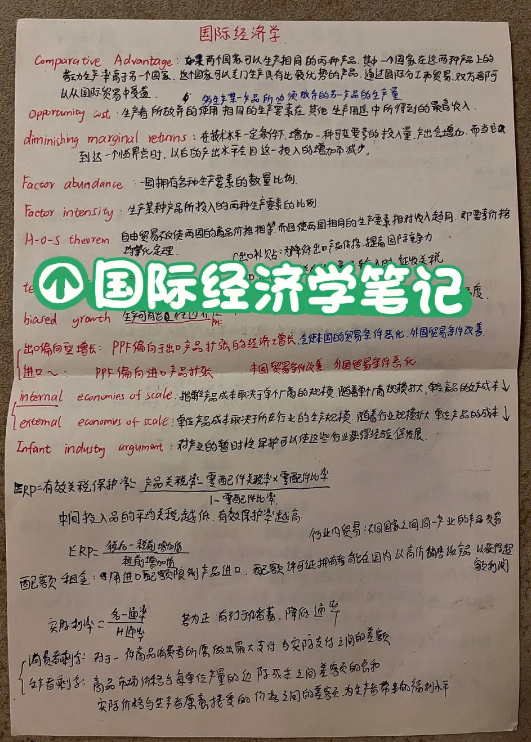 国际经济学
Comparative Advantage: 如果两个国家可以生产相同的两种产品, 其中一个国家在这两种产品上的
劳动生产率高于另一个国家, 这个国家可以专门生产具有比较优势的产品, 通过国际分工和贸易, 双方都可
以从国际贸易中受益
为生产某一产品所必须放弃的另一产品的生产量
Opportunity cost: 生产者所放弃的使用相同的生产要素在其他生产用途中所得到的最高收入.
diminishing marginal returns: 在技术水平一定条件下, 增加一种可变要素的投入量, 产出会增加, 而当它
到达一个临界点时, 以后的产出水平会因这一投入的增加而减少.
Factor abundance: 一国拥有各种生产要素的数量比例.
Factor intensity: 生产某种产品所投入的两种生产要素的比例
H-O-S theorem 自由贸易不仅使两国的商品价格相等, 而且使两国相同的生产要素相对收入趋同. 即要素价格
均等化定理.
出口补贴: 为降低出口产品价格, 提高国际竞争力
征收关税
国际经济学笔记
biased growth
出口偏向型增长: PPF偏向于出口产品扩张的经济增长, 会使本国的贸易条件恶化, 外国贸易条件改善.
进口~: PPF偏向进口产品扩张 本国贸易条件改善, 外国贸易条件恶化
internal economies of scale: 指单位产品成本取决于单个厂商的规模, 随着单个厂商规模扩大, 单位产品的生产成本↓
external economies of scale: 单位产品成本取决于所在行业的生产规模, 随着行业规模扩大 单位产品的成本↓
Infant industry argument: 对产业的暂时性保护可以使这些行业获得经验, 促发展.
ERP=有效关税保护率= 产品关税率-零配件关税率×零配件比率
1-零配件比率
中间投入品的平均关税越低, 有效保护率越高
行业内贸易: 不同国家之间同一产业的产品交易
ERP= 税后-税前增加值
税前增加值
配额租金: 用进口配额限制产品进口, 配额许可证拥有者能在国内以高价销售该产品, 以获得超
额利润
实际利率=
若为正 有利于储蓄, 降低通率
消费者剩余: 对于一种商品消费者所愿做出最大支付与实际支付之间的差额
生产者剩余: 商品市场价格与每单位产量的边际成本之间差额的总和
实际价格与生产者愿意接受的价格之间的差额, 为生产者带来的福利水平